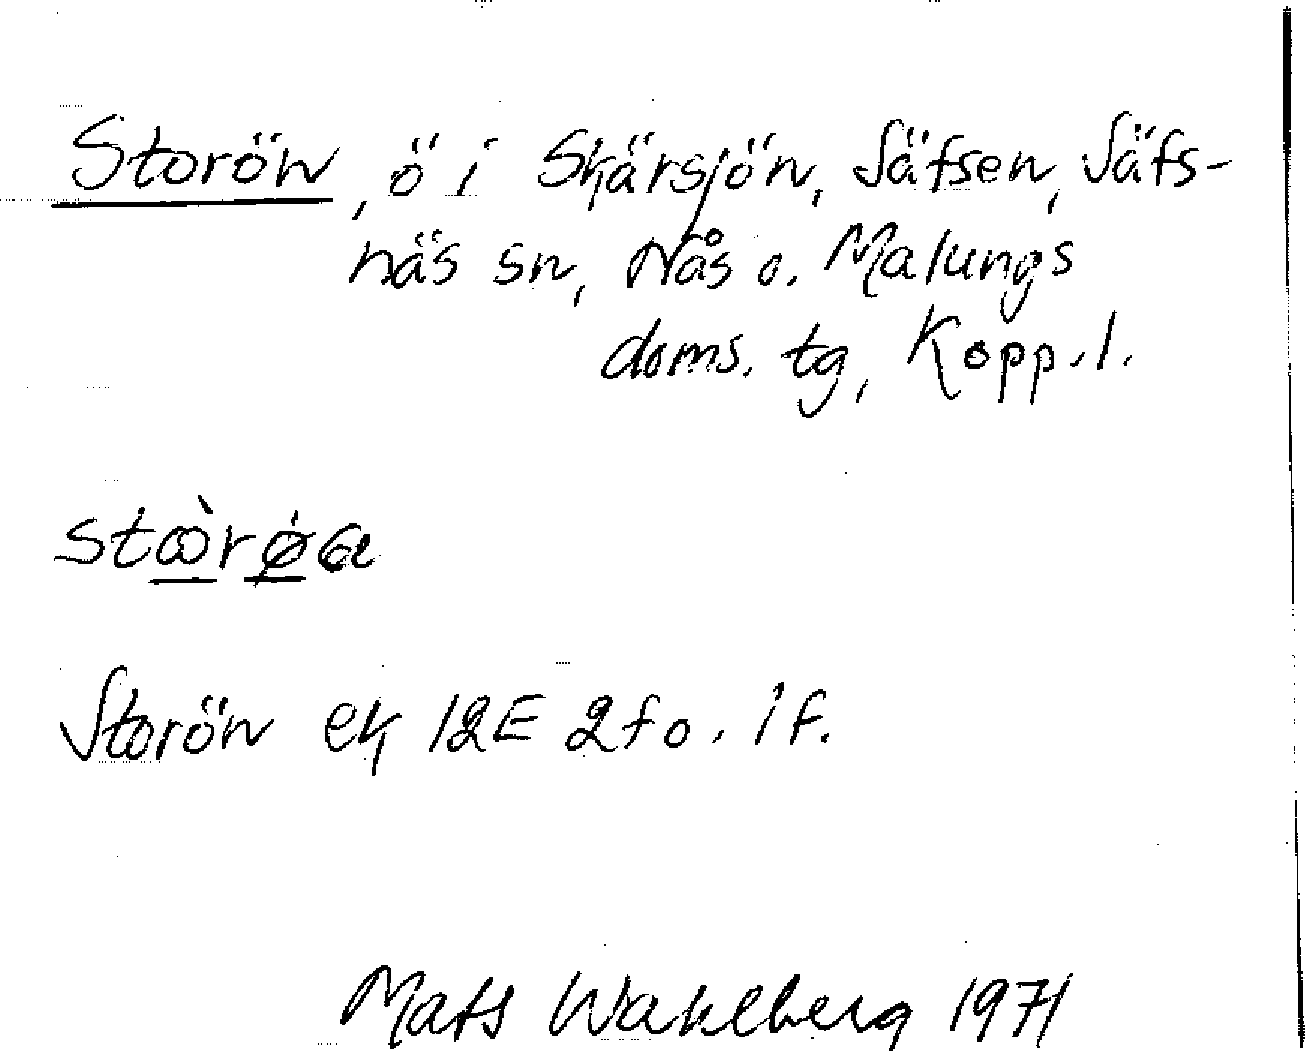 Storön, ö i Skärsjön, Säfsen, Säfs-
näs sn, Nås o. Malungs
doms. tg, Kopp. l.
Storön ek 12E 2f o. 1f.
Mats Wahlberg 1971